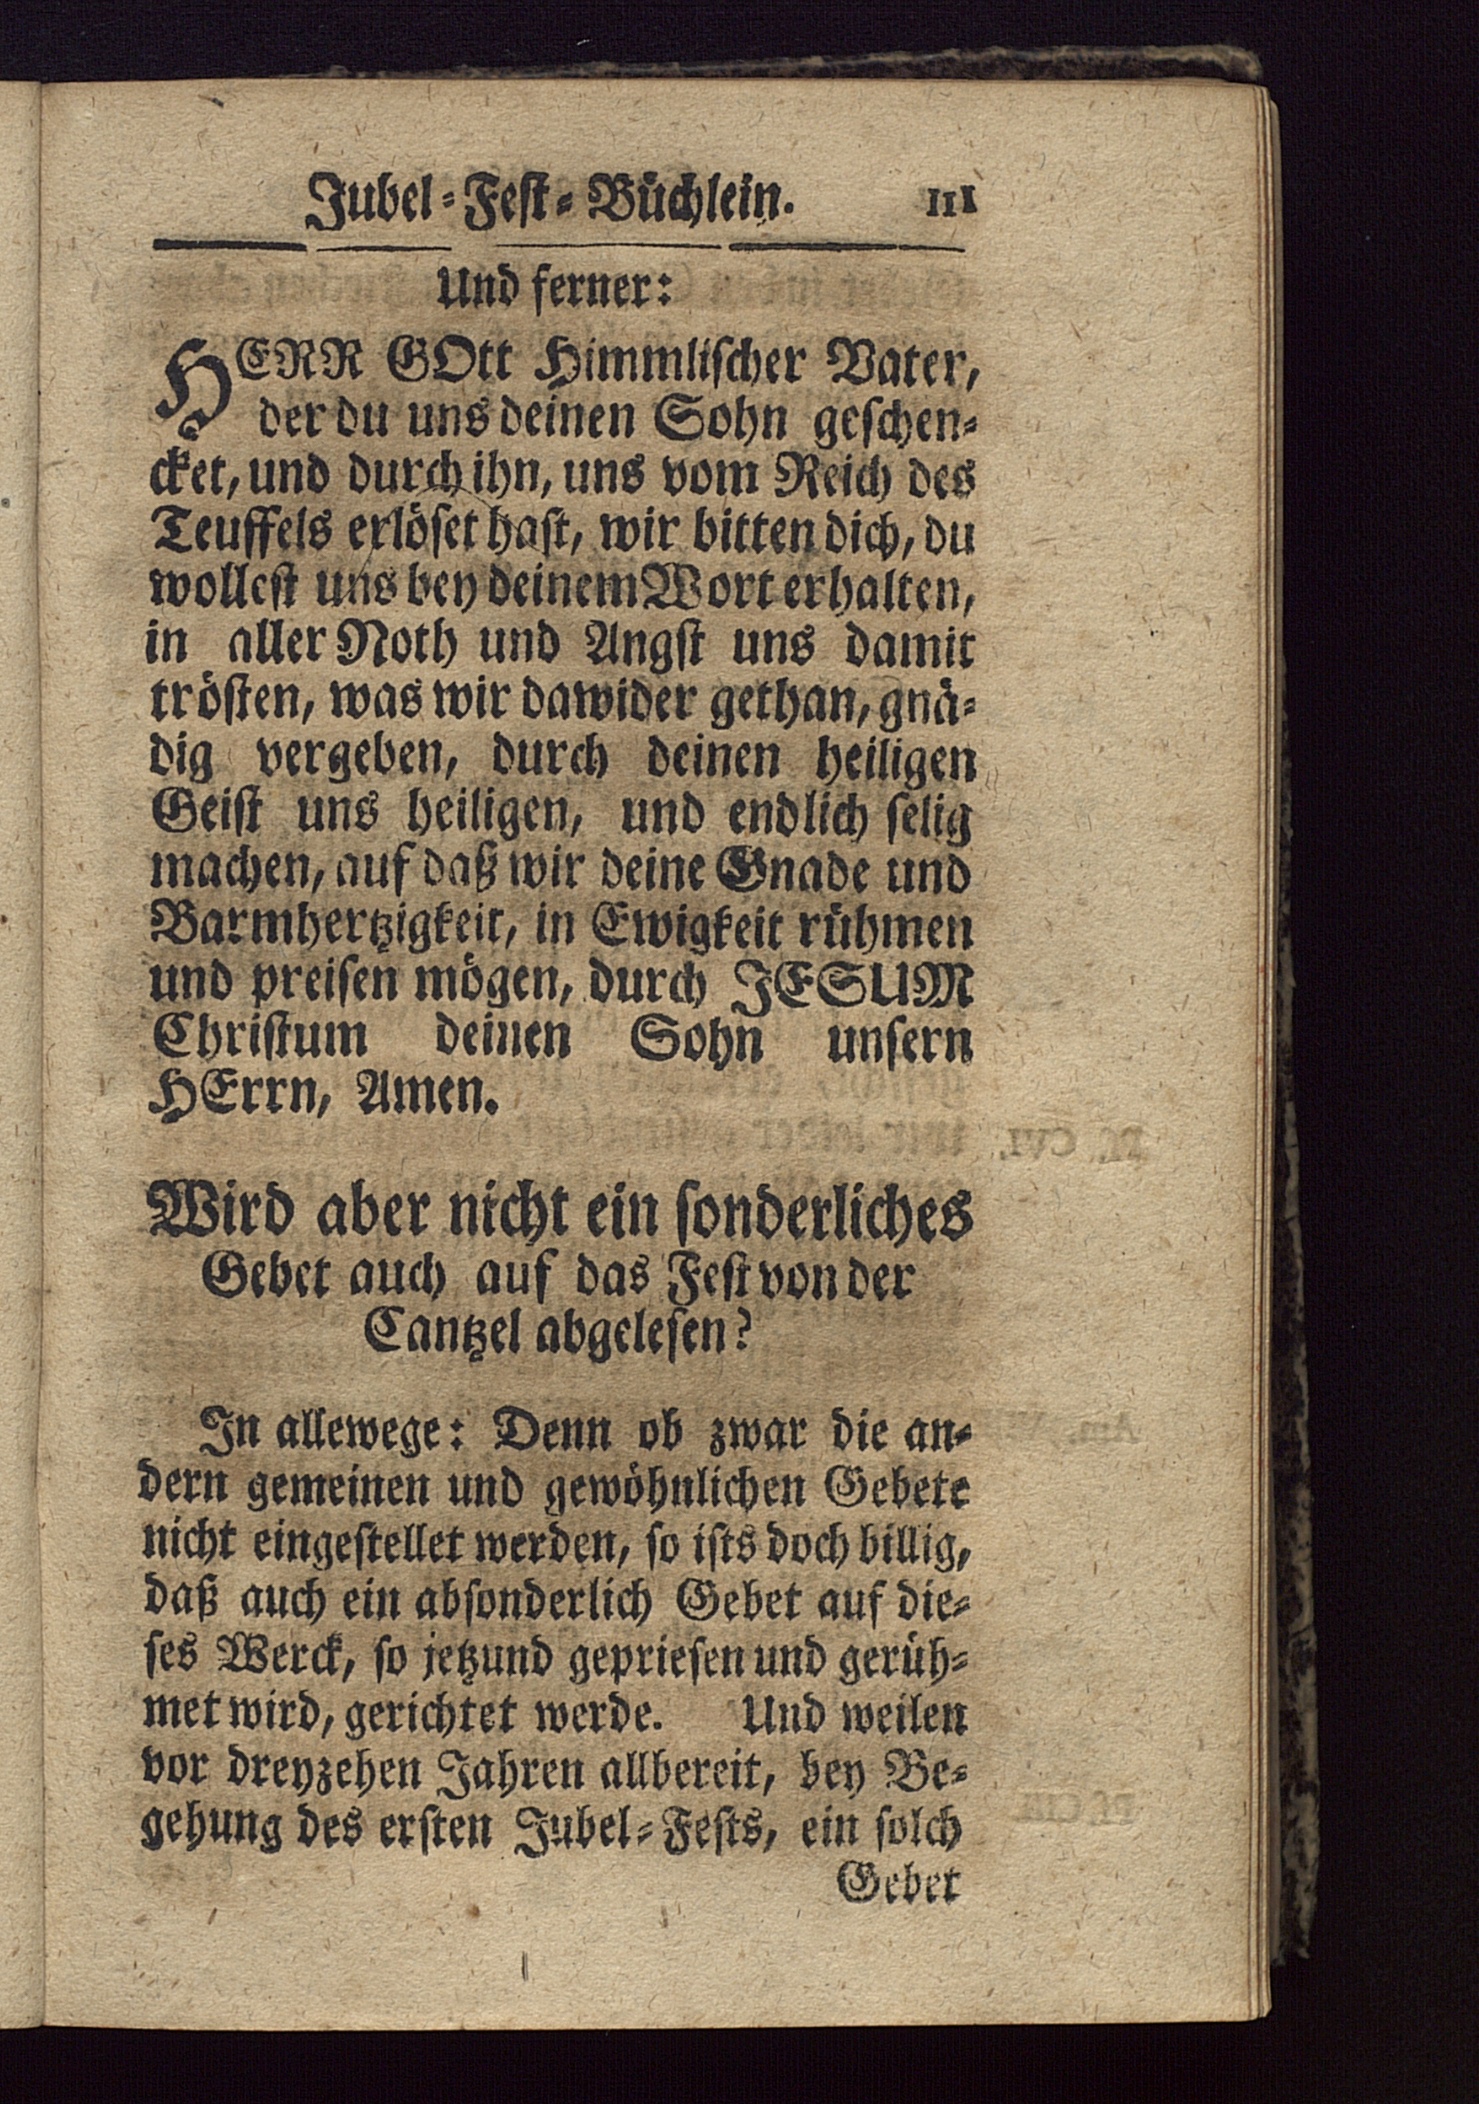 Jubel-Fest-Büchlein. 111
Und ferner:
HERR GOtt Himmlischer Vater,
der du uns deinen Sohn geschen-
cket, und durch ihn, uns vom Reich des
Teuffels erlöset hast, wir bitten dich, du
wollest uns bey deinem Wort erhalten,
in aller Noth und Angst uns damit
trösten, was wir dawider gethan, gnä-
dig vergeben, durch deinen heiligen
Geist uns heiligen, und endlich selig
machen, auf daß wir deine Gnade und
Barmhertzigkeit, in Ewigkeit rühmen
und preisen mögen, durch JESUM
Christum deinen Sohn unsern
HErrn, Amen.
Wird aber nicht ein sonderliches
Gebet auch auf das Fest von der
Cantzel abgelesen?
In allewege: Denn ob zwar die an-
dern gemeinen und gewöhnlichen Gebete
nicht eingestellet werden, so ists doch billig,
daß auch ein absonderlich Gebet auf die-
ses Werck, so jetzund gepriesen und gerüh-
met wird, gerichtet werde. Und weilen
vor dreyzehen Jahren allbereit, bey Be-
gehung des ersten Jubel-Fests, ein solch
Gebet